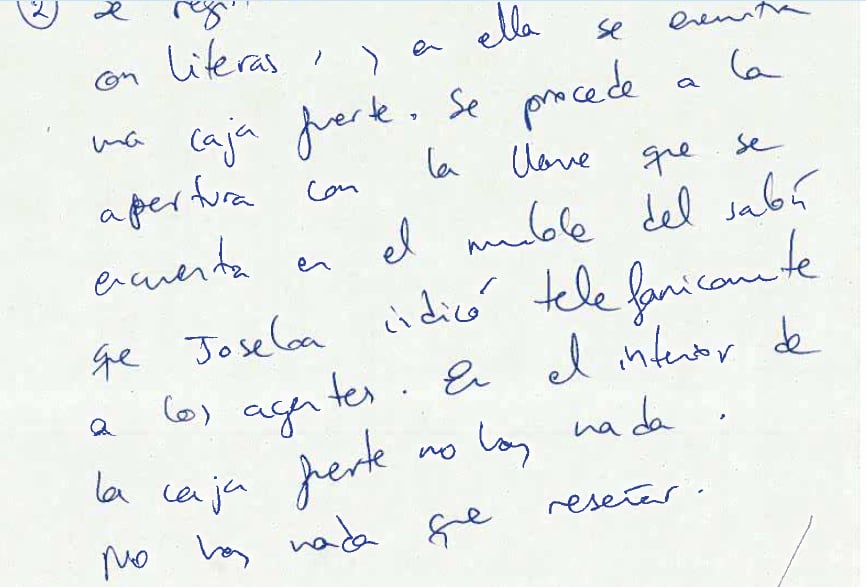 2) se
con literas, y en ella se encuentra
una caja fuerte. Se procede a la
apertura con la llave que se
encuentra en el mueble del salón
que Joseba indicó telefonicamente
a los agentes. En el interior de
la caja fuerte no hay nada.
No hay nada que reseñar.